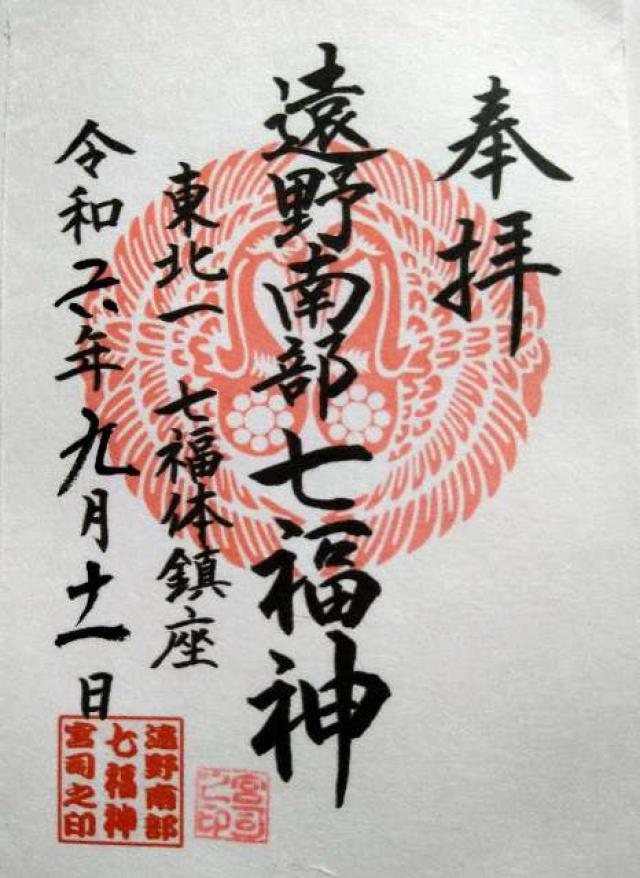 奉拝
遠野南部七福神
東北一 七福体鎮座
令和六年九月十一日
遠野南部
七福神
宮司之印
宮司
之印